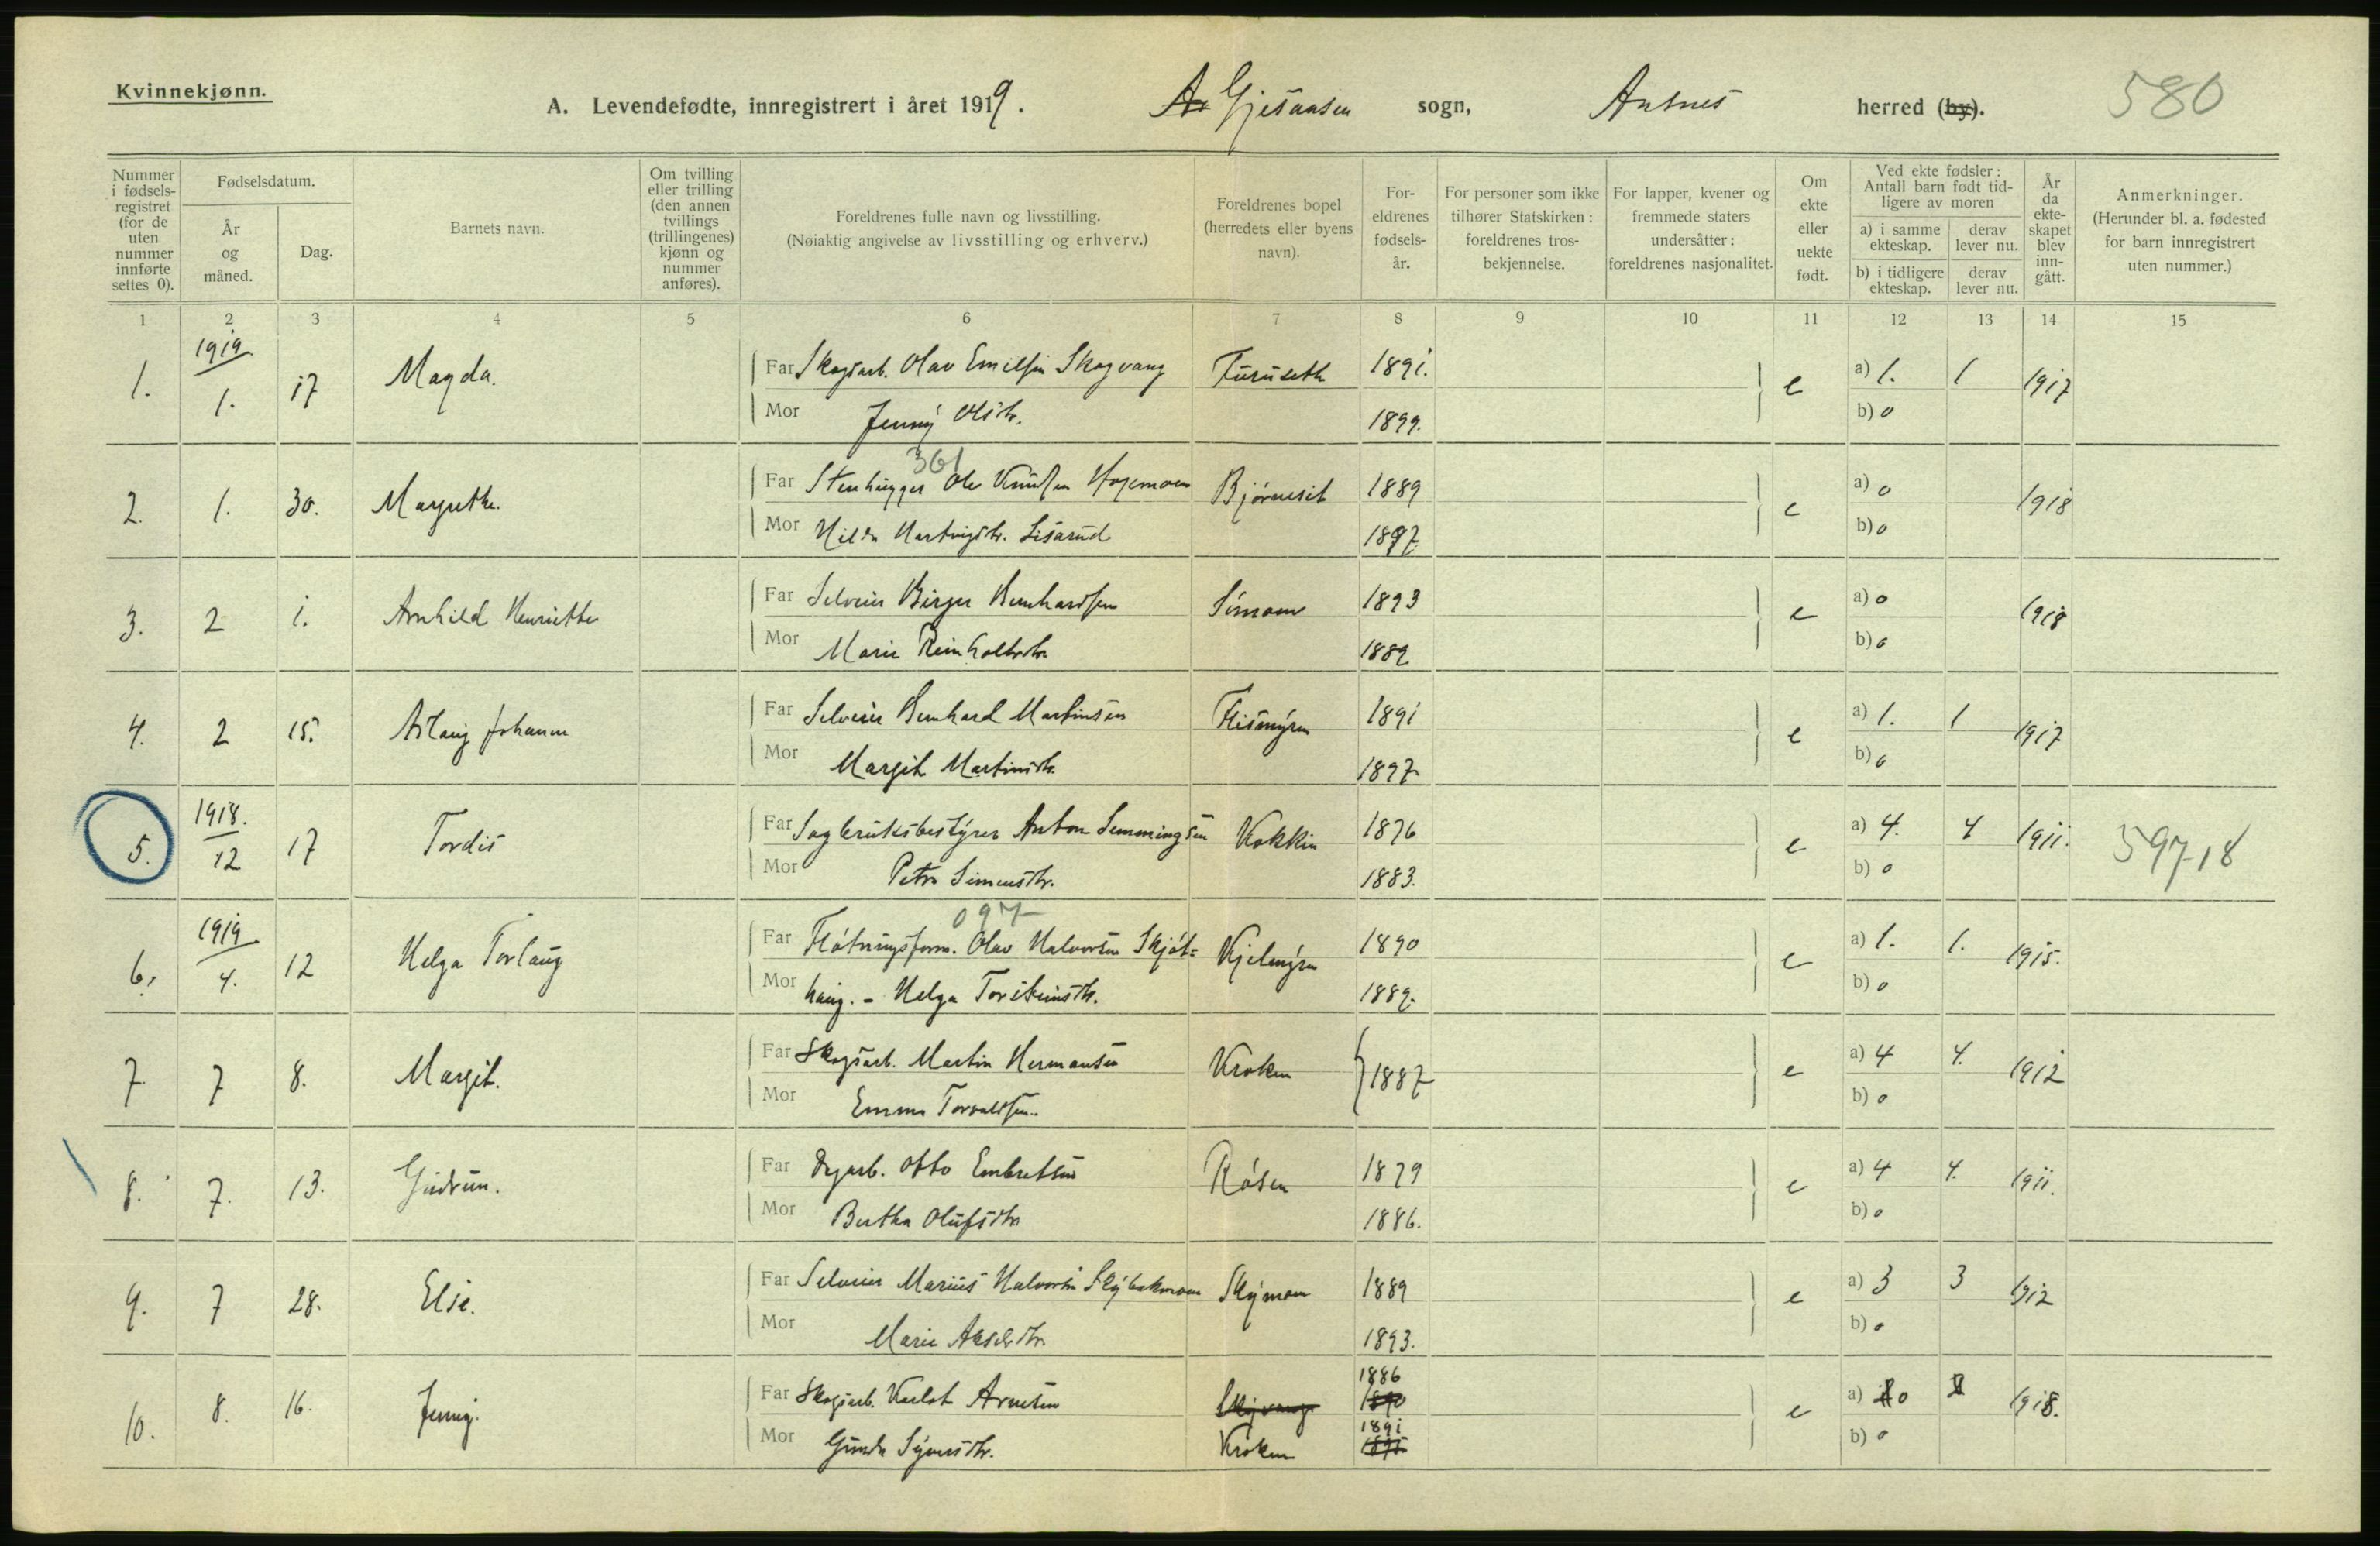 Kvinnekjønn.
A. Levendefødte, innregistrert i året 1919. Gjesaasen sogn, Aasnes herred (by). 580
Nummer i fødselsregistret (for de uten nummer innførte settes 0).
Fødselsdatum.
År og måned.
Dag.
Barnets navn.
Om tvilling eller trilling (den annen tvillings (trillingenes) kjønn og nummer anføres).
Foreldrenes fulle navn og livsstilling.
(Nøiaktig angivelse av livsstilling og erhverv.)
Foreldrenes bopel (herredets eller byens navn).
Foreldrenes fødselsår.
For personer som ikke tilhører Statskirken: foreldrenes trosbekjennelse.
For lapper, kvener og fremmede staters undersåtter: foreldrenes nasjonalitet.
Om ekte eller uekte født.
Ved ekte fødsler: Antall barn født tidligere av moren
a) i samme ekteskap.
derav lever nu.
b) i tidligere ekteskap.
derav lever nu.
År da ekteskapet blev inngått.
Anmerkninger.
(Herunder bl. a. fødested for barn innregistrert uten nummer.)
1 2 3 4 5 6 7 8 9 10 11 12 13 14 15
1919
1. 1. 17 Magda. Far Skogsarb. Olav Emilsen Skogvang Furuseth 1891. e a) 1. 1 1917
Mor Jenny Olsdtr. 1899. b) 0
361
2. 1. 30. Margrethe. Far Stenhugger Ole Knudsen Hagemoen Bjørneset 1889 e a) 0 1918
Mor Hilda Hartvigdtr. Lisarud 1897 b) 0
3. 2 1. Arnhild Henriette Far Selveier Birger Bernhardsen Simoen 1893 e a) 0 1918
Mor Marie Reinholtsdtr. 1889 b) 0
4. 2 15. Aslaug Johanne Far Selveier Bernhard Martinsen Flismyren 1891 e a) 1. 1 1917
Mor Margit Martinsdtr. 1897 b) 0
1918.
5. 12 17 Tordis Far Sagbruksbestyrer Anton Semmingsen Kokkin 1876 e a) 4. 4 1911. 597-18
Mor Petra Simensdtr. 1883. b) 0
1919 097
6. 4. 12 Helga Torlaug Far Fløtningsform. Olav Halvorsen Skjøt= Kjelmyren 1890 e a) 1. 1. 1915.
Mor haug. - Helga Torsteinsdtr. 1889. b) 0
7 7 8. Margit. Far Skogsarb. Martin Hermansen Kroken 1887 e a) 4 4. 1912
Mor Emma Torvaldsen. b) 0
8. 7. 13. Gudrun. Far Dagarb. Otto Embretsen Råsen 1879 e a) 4 4. 1911.
Mor Bertha Olufsdtr. 1886. b) 0
9. 7 28. Else. Far Selveier Marius Halvorsen Skybakmoen Skymoen 1889 e a) 3 3 1912
Mor Marie Akselsdtr. 1893. b) 0
1886
10. 8. 16. Jenny. Far Skogsarb. Karlot Arnesen 1890 e a) 0 1918.
1891
Mor Gunda Syversdtr. Kroken b) 0